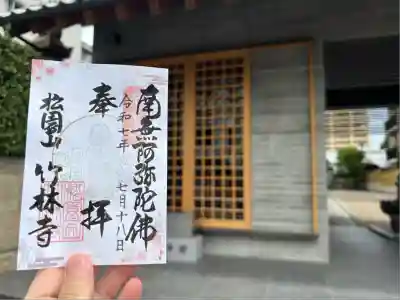 奉拝
南無阿弥陀佛
令和七年
七月十八日
松園山
竹林寺